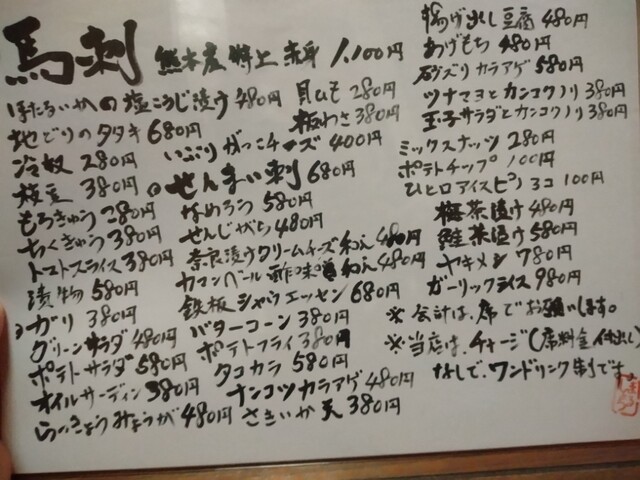 馬刺 熊本産特上赤身 1,100円
ほたるいかの塩こうじ漬け 480円
地どりのタタキ 680円
冷奴 280円
枝豆 380円
もろきゅう 280円
ちくきゅう 380円
トマトスライス 380円
漬物 580円
ガリ 380円
グリーンサラダ 480円
ポテトサラダ 580円
オイルサーディン 380円
らっきょうみょうが 480円
貝ひも 280円
板わさ 380円
いぶりがっこチーズ 400円
せんまい刺 680円
なめろう 580円
せんじがら 480円
奈良漬クリームチーズ和え 480円
カマンベール酢味噌和え 480円
鉄板シャウエッセン 680円
バターコーン 380円
ポテトフライ 380円
タコカラ 580円
ナンコツカラアゲ 480円
さきいか天 380円
揚げ出し豆腐 480円
あげもち 480円
砂ズリカラアゲ 580円
ツナマヨとカンコクノリ 380円
玉子サラダとカンコクノリ 380円
ミックスナッツ 280円
ポテトチップ 100円
ひと口アイスピノ 3コ 100円
梅茶漬け 480円
鮭茶漬け 580円
ヤキメシ 780円
ガーリックライス 980円
※会計は、席でお願いします。
※当店は、チャージ(席料金、付出し)
なしで、ワンドリンク制です。